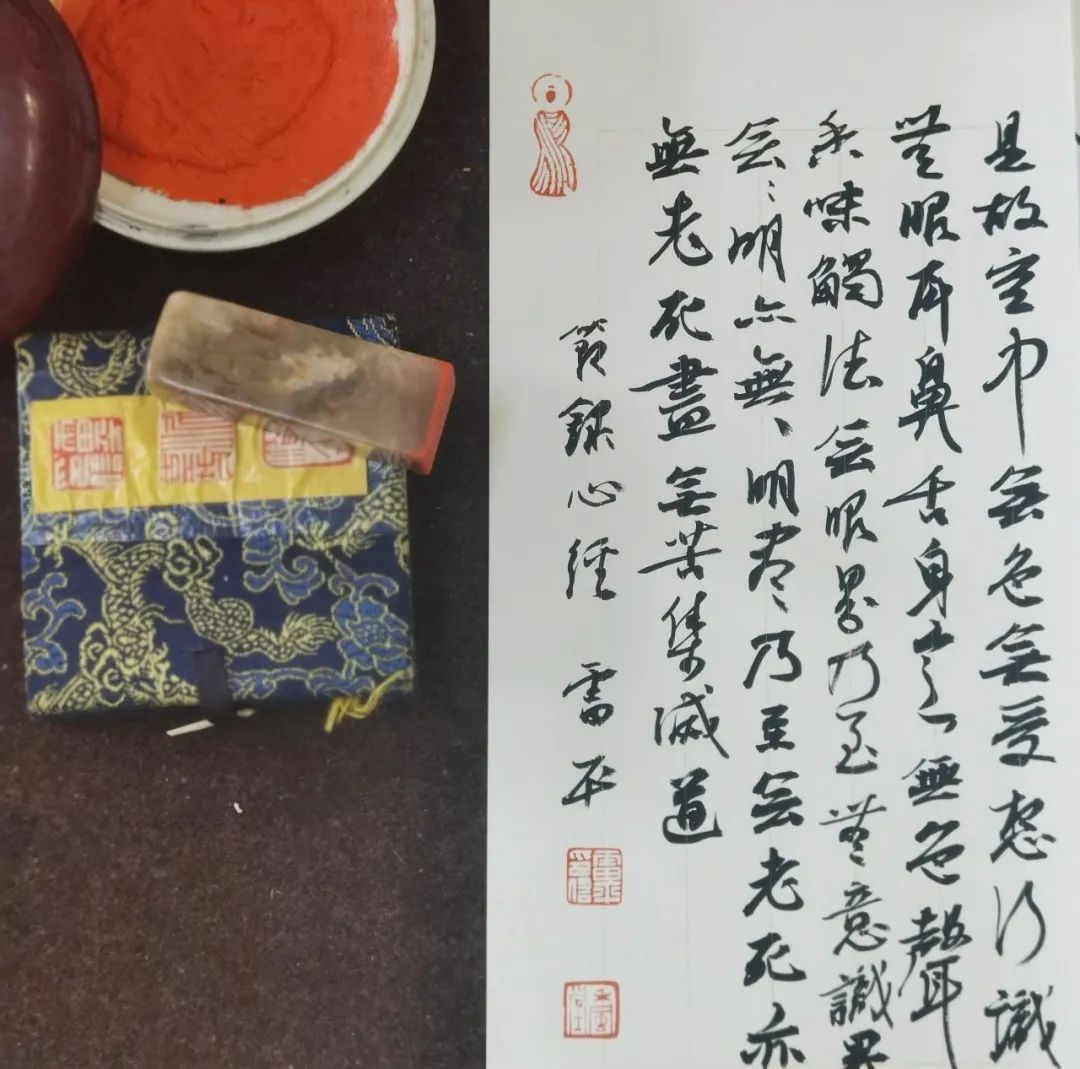 是故空中無色無受想行識
無眼耳鼻舌身意無色聲
香味觸法無眼界乃至無意識界
無〻明亦無〻明尽乃至無老死亦
無老死盡無苦集滅道
節錄心經 雷平
雷平印信